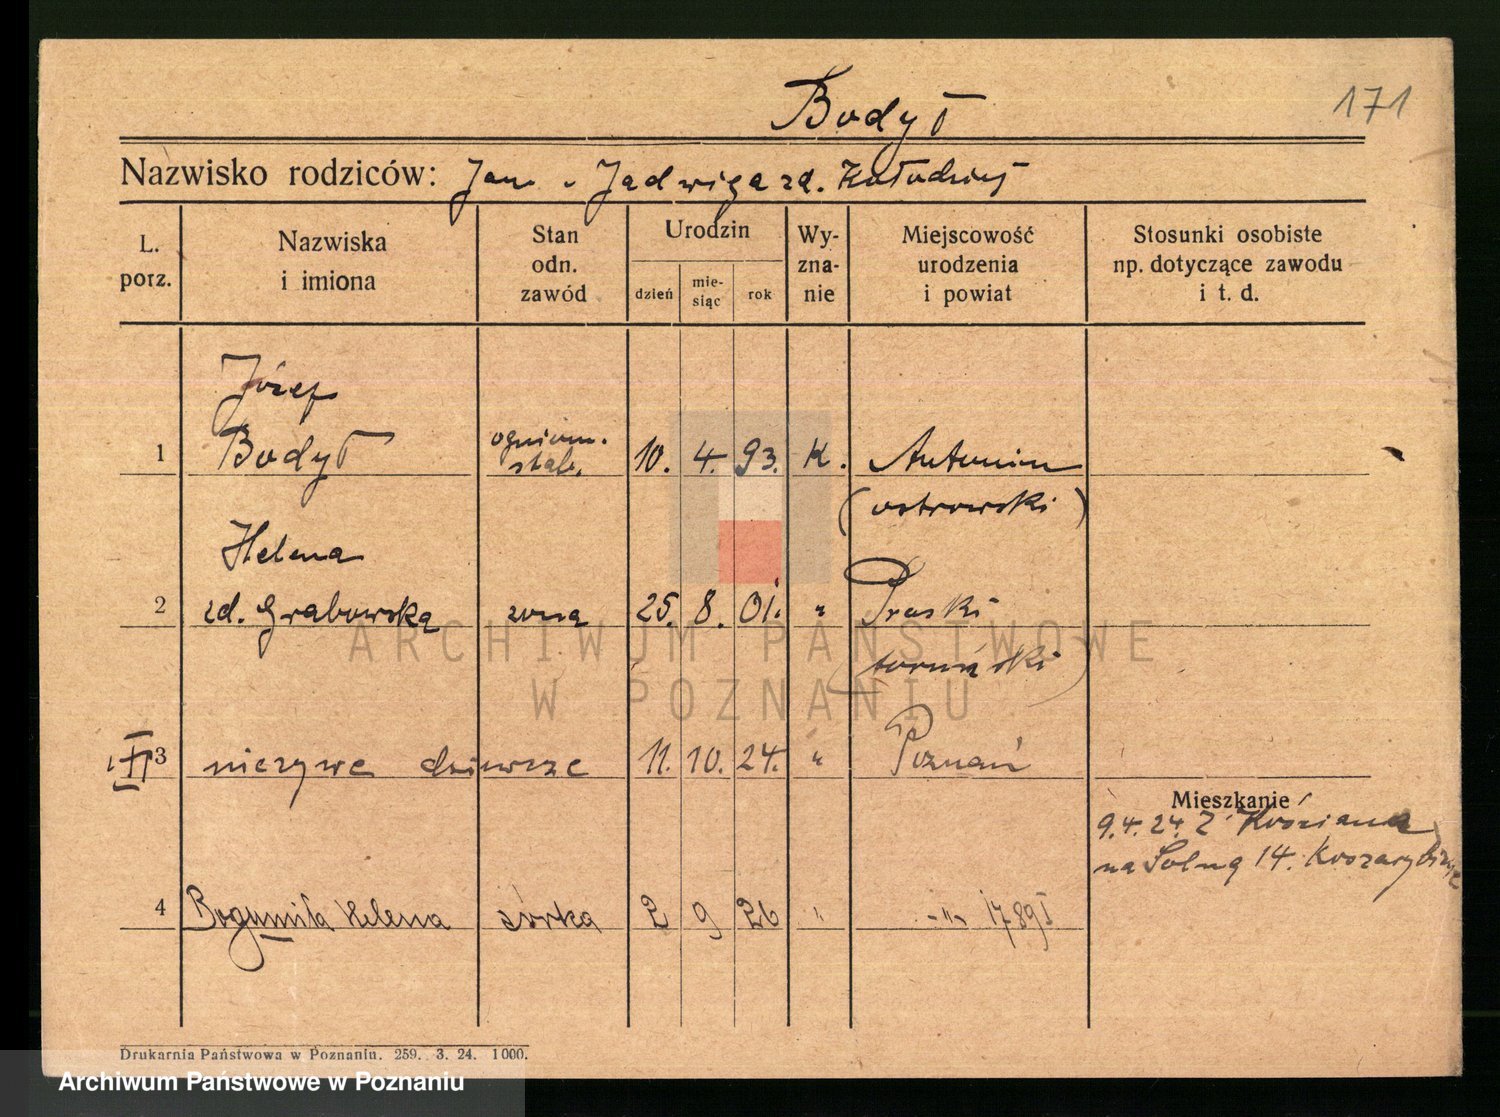 Bodył
171
Nazwisko rodziców: Jan i Jadwiga zd. Kołodziej
L. porz.
Nazwiska i imiona
Stan odn. zawód
Urodzin
dzień
mie-siąc
rok
Wy-zna-nie
Miejscowość urodzenia i powiat
Stosunki osobiste np. dotyczące zawodu i t. d.
Józef
1 Bodył ogniom. stab. 10. 4. 93. K. Antonin
(ostrowski)
Helena
2 zd. Grabowska żona 25. 8. 01. " Pruski
(toruński)
3 nieżywe dziewcze 11. 10. 24. " Poznań
Mieszkanie
9.4.24 Z
na Solną 14. Koszary
4 Bogumiła Helena córka 2 9 26 " -"- 1789I
Drukarnia Państwowa w Poznaniu. 259. 3. 24. 1000.
ARCHIWUM PAŃSTWOWE
W POZNANIU
Archiwum Państwowe w Poznaniu